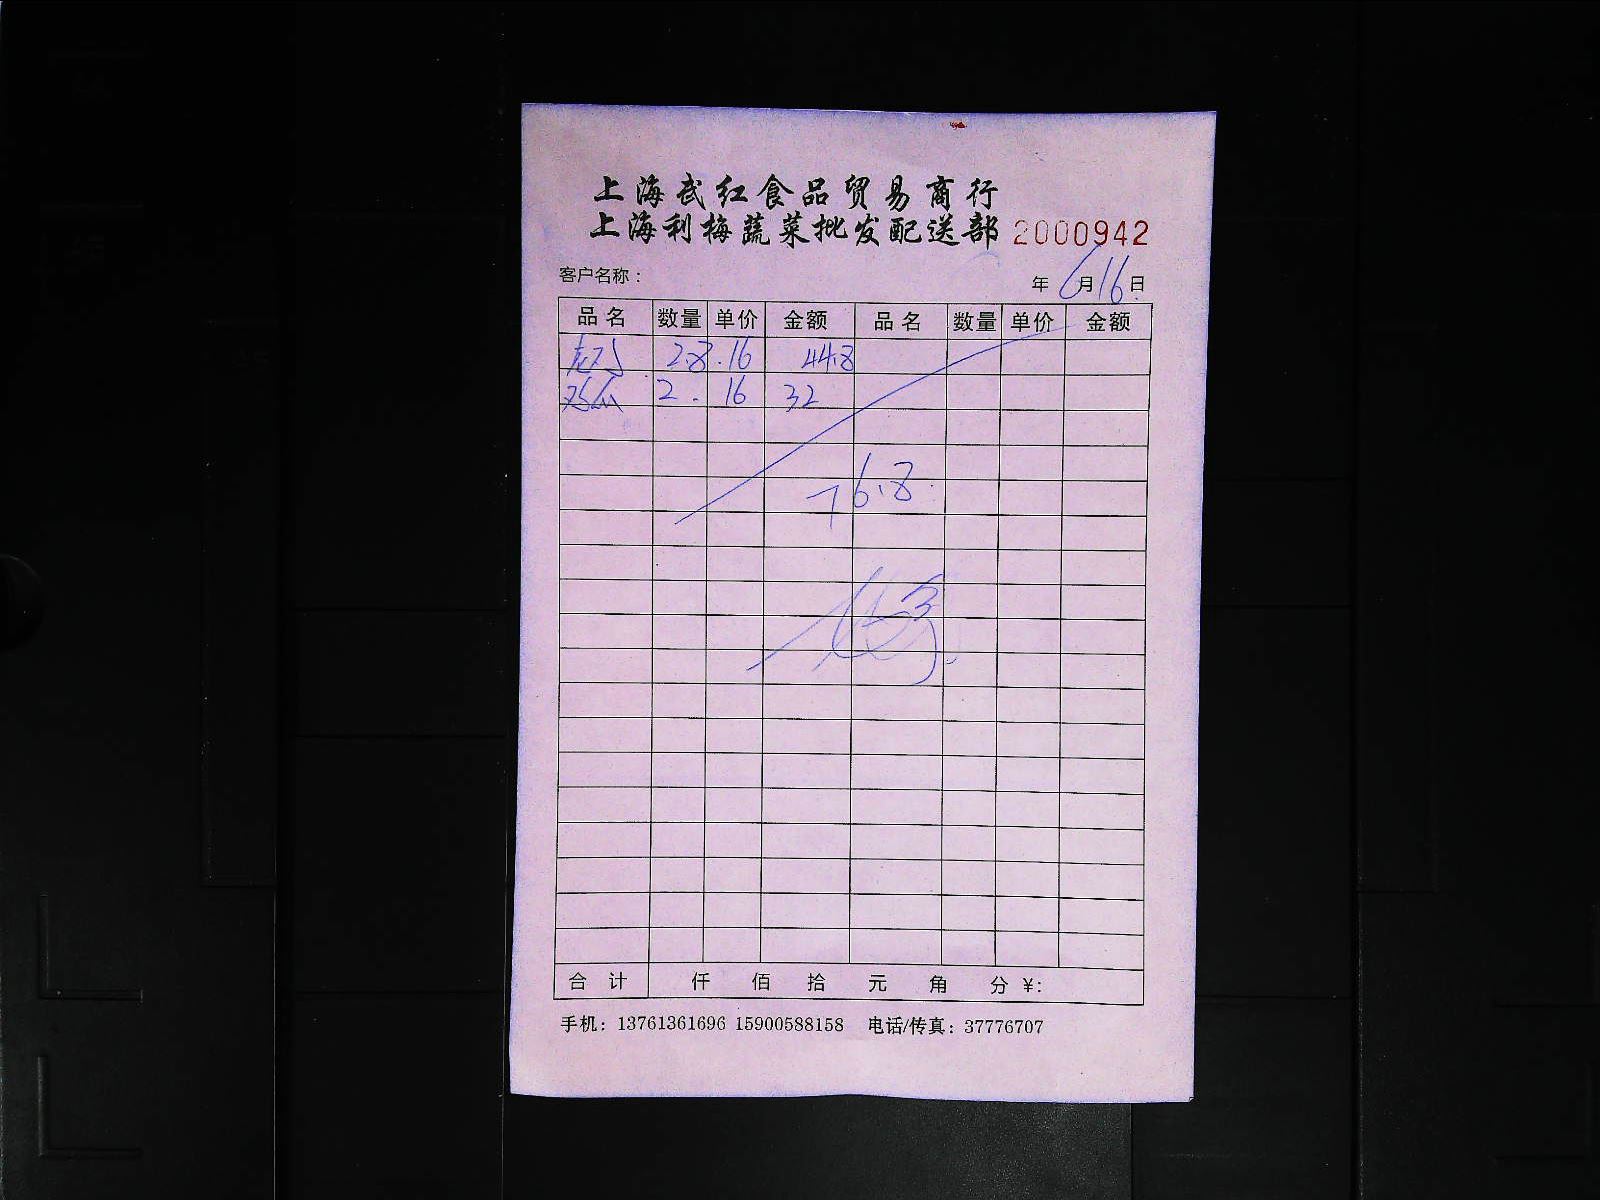 上海武红食品贸易商行
上海利梅蔬菜批发配送部 2000942
客户名称： 年 6月16日
品名 数量 单价 金额 品名 数量 单价 金额
2.8 16 44.8
鸡爪 2 16 32
76.8
合计 仟 佰 拾 元 角 分 ¥:
手机：13761361696 15900588158 电话/传真：37776707